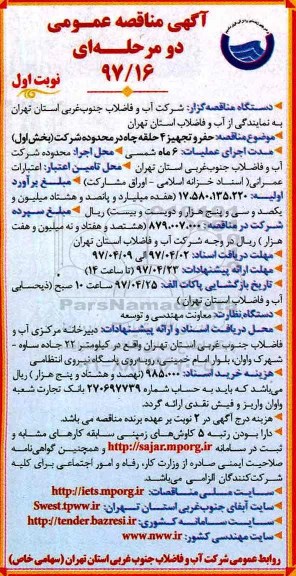 آگهی مناقصه عمومی
دو مرحله‌ای
۹۷/۱۶
نوبت اول
دستگاه مناقصه‌گزار: شرکت آب و فاضلاب جنوب‌غربی استان تهران
به نمایندگی از آب و فاضلاب استان تهران
موضوع مناقصه: حفر و تجهیز ۴ حلقه چاه در محدوده شرکت (بخش اول)
مدت اجرای عملیات: ۶ ماه شمسی محل اجرا: محدوده شرکت
آب و فاضلاب جنوب‌غربی استان تهران محل تامین اعتبار: اعتبارات
عمرانی( اسناد خزانه اسلامی - اوراق مشارکت) مبلغ برآورد
اولیه: ۱۷.۵۸۰.۱۳۵.۲۲۰ (هفده میلیارد و پانصد و هشتاد میلیون و
یکصد و سی و پنج هزار و دویست و بیست) ریال مبلغ سپرده
شرکت در مناقصه: ۸۷۹.۰۰۷.۰۰۰ (هشتصد و هفتاد و نه میلیون و هفت
هزار ) ریال در وجه شرکت آب و فاضلاب استان تهران
مهلت دریافت اسناد: ۹۷/۰۴/۰۲ الی ۹۷/۰۴/۰۹
مهلت ارائه پیشنهادات: ۹۷/۰۴/۲۳ (تا ساعت ۱۴)
تاریخ بازگشایی پاکات الف: ۹۷/۰۴/۲۵ ساعت ۱۰ صبح (ذیحسابی
آب و فاضلاب استان تهران)
دستگاه نظارت: معاونت مهندسی و توسعه
محل دریافت اسناد و ارائه پیشنهادات: دبیرخانه مرکزی آب و
فاضلاب جنوب غربی استان تهران واقع در کیلومتر ۲۲ جاده ساوه -
شهرک واوان، بلوار امام خمینی، روبه‌روی پاسگاه نیروی انتظامی
هزینه خرید اسناد: ۹۸۵.۰۰۰ (نهصد و هشتاد و پنج هزار ) ریال
می‌باشد که باید به حساب شماره ۲۷۰۶۹۷۷۳۹ بانک تجارت شعبه
واوان واریز و فیش نقدی ارائه گردد.
هزینه درج آگهی در ۲ نوبت بر عهده برنده مناقصه می باشد.
دارا بودن رتبه ۵ کاوش‌های زمینی، سابقه کارهای مشابه و
ثبت در سامانه http://sajar.mporg.ir و همچنین گواهی‌نامه
صلاحیت ایمنی صادره از وزارت کار، رفاه و امور اجتماعی برای کلیه
شرکت‌کنندگان الزامی می‌باشد.
سایت ملی مناقصات: http://iets.mporg.ir
سایت آبفای جنوب‌غربی استان تهران: Swest.tpww.ir
سایت سامانه کشوری: http://tender.bazresi.ir
سایت مهندسی کشور: www.nww.ir
روابط عمومی شرکت آب و فاضلاب جنوب غربی استان تهران (سهامی خاص)